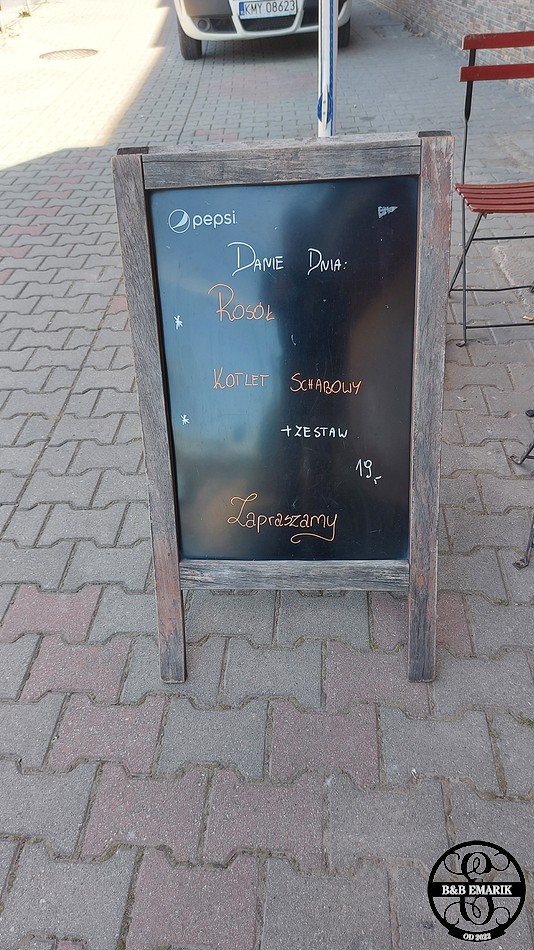 KMY 08623
pepsi
Danie Dnia:
* Rosół
Kotlet Schabowy
*
+ zestaw
19,-
Zapraszamy
B&B EMARIK
OD 2022